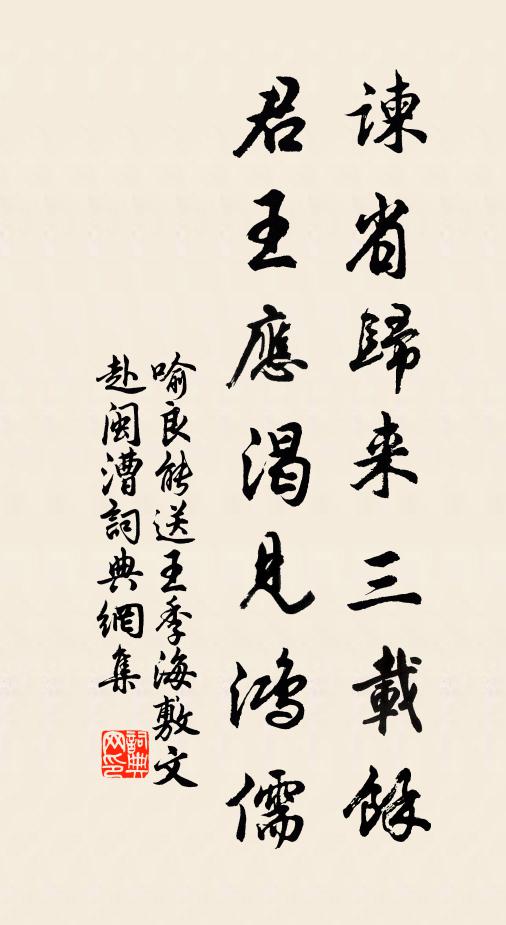 諫省歸来三載餘
君王應渴見鴻儒
喻良能送王季海敷文
赴閩漕詞典網集
詞典网印